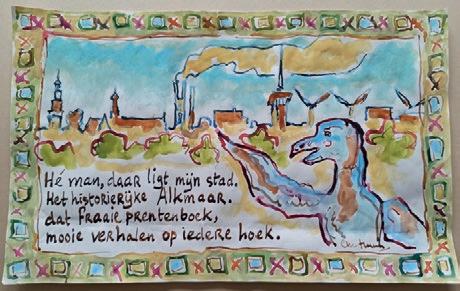 Hé man, daar ligt mijn stad.
Het historierijke Alkmaar.
dat fraaie prentenboek,
mooie verhalen op iedere hoek.